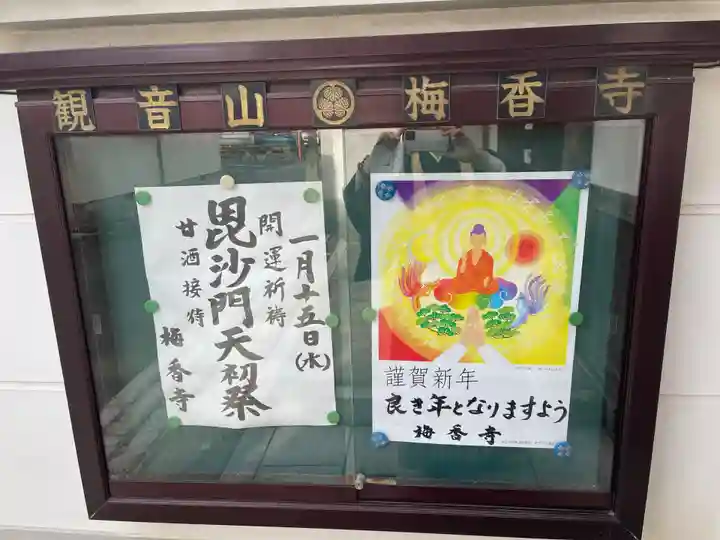 観音山 梅香寺
一月十五日(水)
開運祈祷
毘沙門天初祭
甘酒接待
梅香寺
謹賀新年
良き年となりますよう
梅香寺